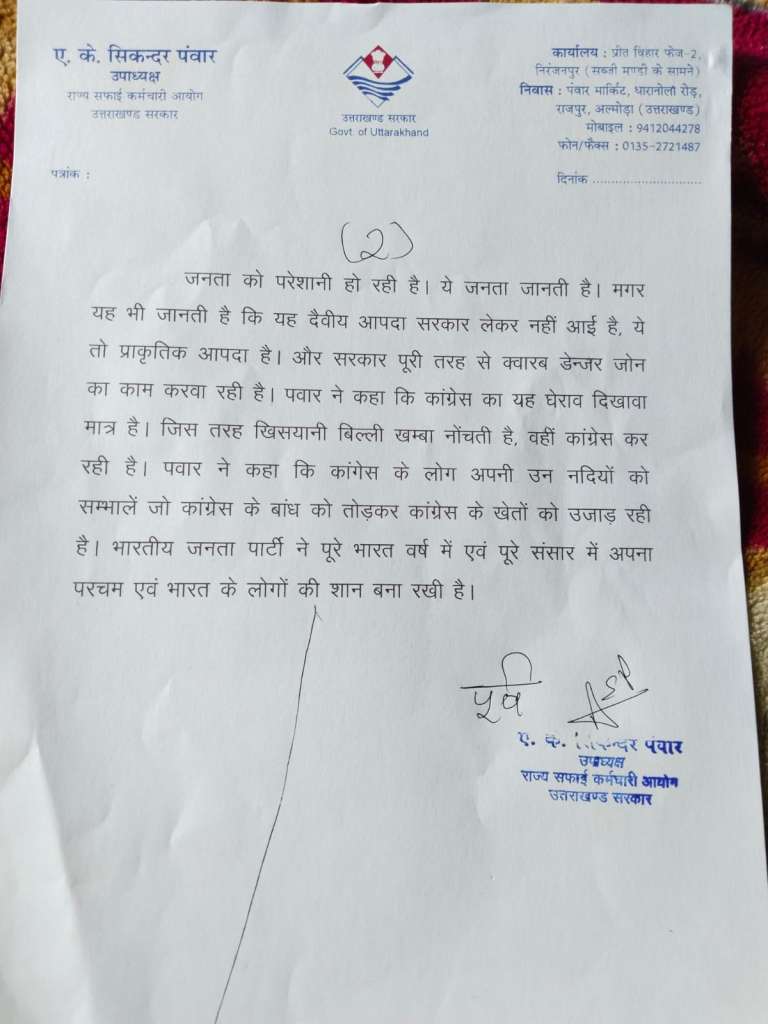 ए. के. सिकन्दर पंवार
उपाध्यक्ष
राज्य सफाई कर्मचारी आयोग
उत्तराखण्ड सरकार
उत्तराखण्ड सरकार
Govt of Uttarakhand
कार्यालय : प्रीत विहार फेज-2,
निरंजनपुर (सब्जी मण्डी के सामने)
निवास : पंवार मार्किट, धारानौला रोड़,
राजपुर, अल्मोड़ा (उत्तराखण्ड)
मोबाइल : 9412044278
फोन/फैक्स : 0135-2721487
पत्रांक :
दिनांक ............................
(2)
जनता को परेशानी हो रही है। ये जनता जानती है। मगर
यह भी जानती है कि यह दैवीय आपदा सरकार लेकर नहीं आई है, ये
तो प्राकृतिक आपदा है। और सरकार पूरी तरह से क्वारब डेन्जर जोन
का काम करवा रही है। पवार ने कहा कि कांग्रेस का यह घेराव दिखावा
मात्र है। जिस तरह खिसयानी बिल्ली खम्बा नोंचती है, वहीं कांग्रेस कर
रही है। पवार ने कहा कि कांगेस के लोग अपनी उन नदियों को
सम्भालें जो कांग्रेस के बांध को तोड़कर कांग्रेस के खेतों को उजाड़ रही
है। भारतीय जनता पार्टी ने पूरे भारत वर्ष में एवं पूरे संसार में अपना
परचम एवं भारत के लोगों की शान बना रखी है।
पूर्व
ए. के. सिकन्दर पंवार
उपाध्यक्ष
राज्य सफाई कर्मचारी आयोग
उत्तराखण्ड सरकार